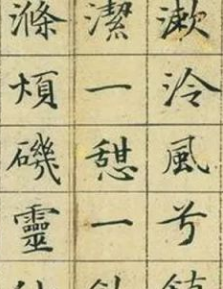 漱泠風兮
潔一憇一
滌煩磯靈